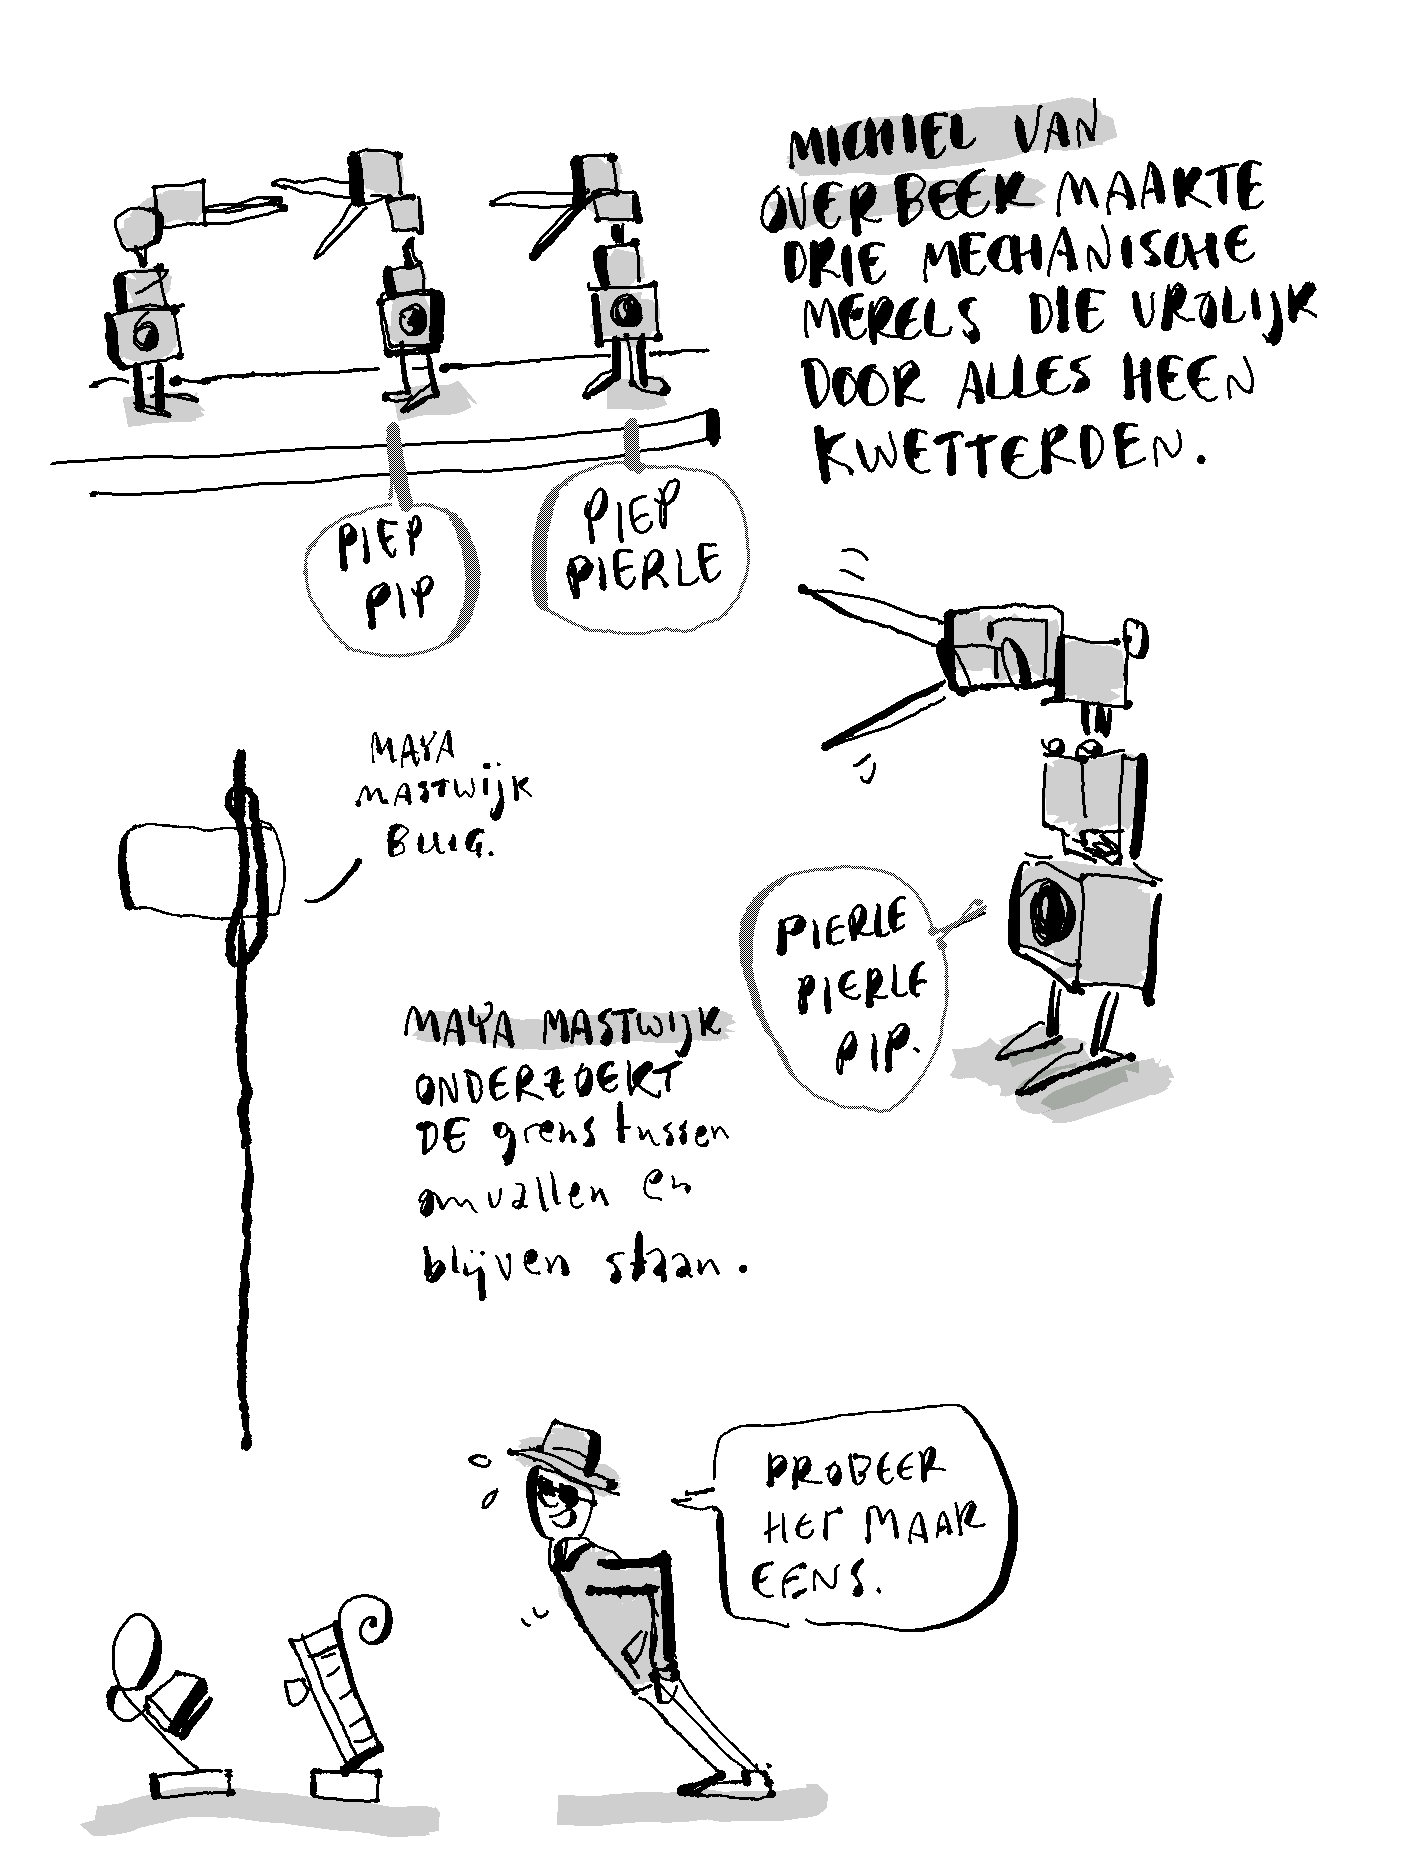 MICHIEL VAN
OVERBEEK MAAKTE
DRIE MECHANISCHE
MERELS DIE VROLIJK
DOOR ALLES HEEN
KWETTERDEN.
PIEP
PIP
PIEP
PIERLE
MAYA
MASTWIJK
BUIG.
PIERLE
PIERLE
PIP.
MAYA MASTWIJK
ONDERZOEKT
DE grens tussen
omvallen en
blijven staan.
PROBEER
HET MAAR
EENS.